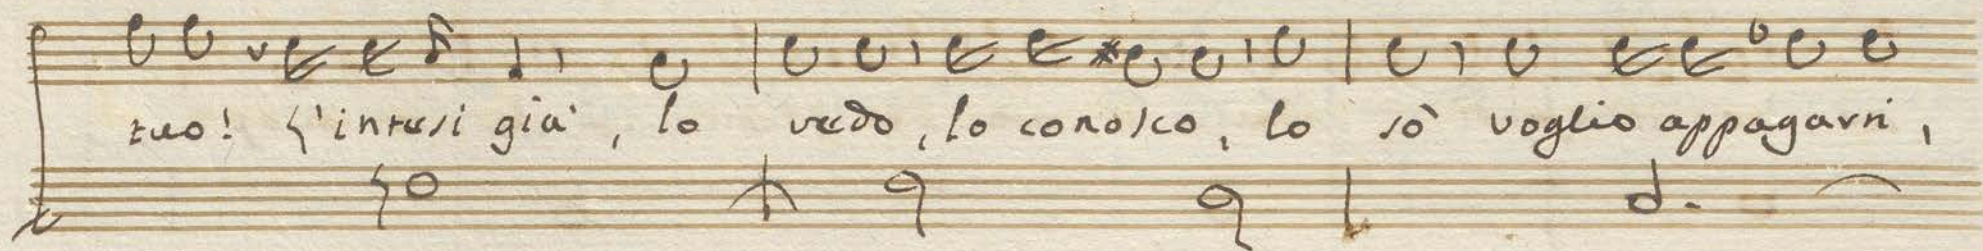 tuo! L'intesi già, lo vedo, lo conosco, lo sò voglio appagarvi,